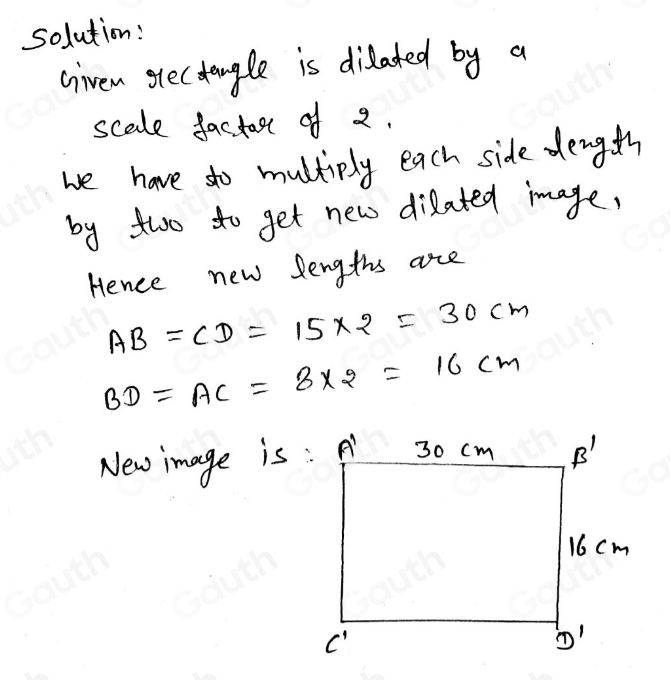 Solution:
Given rectangle is dilated by a
scale factor of 2.
We have to multiply each side length
by two to get new dilated image,
Hence new lengths are
AB = CD = 15 × 2 = 30 cm
BD = AC = 8 × 2 = 16 cm
New image is : A' 30 cm B'
16 cm
C' D'
Gauth